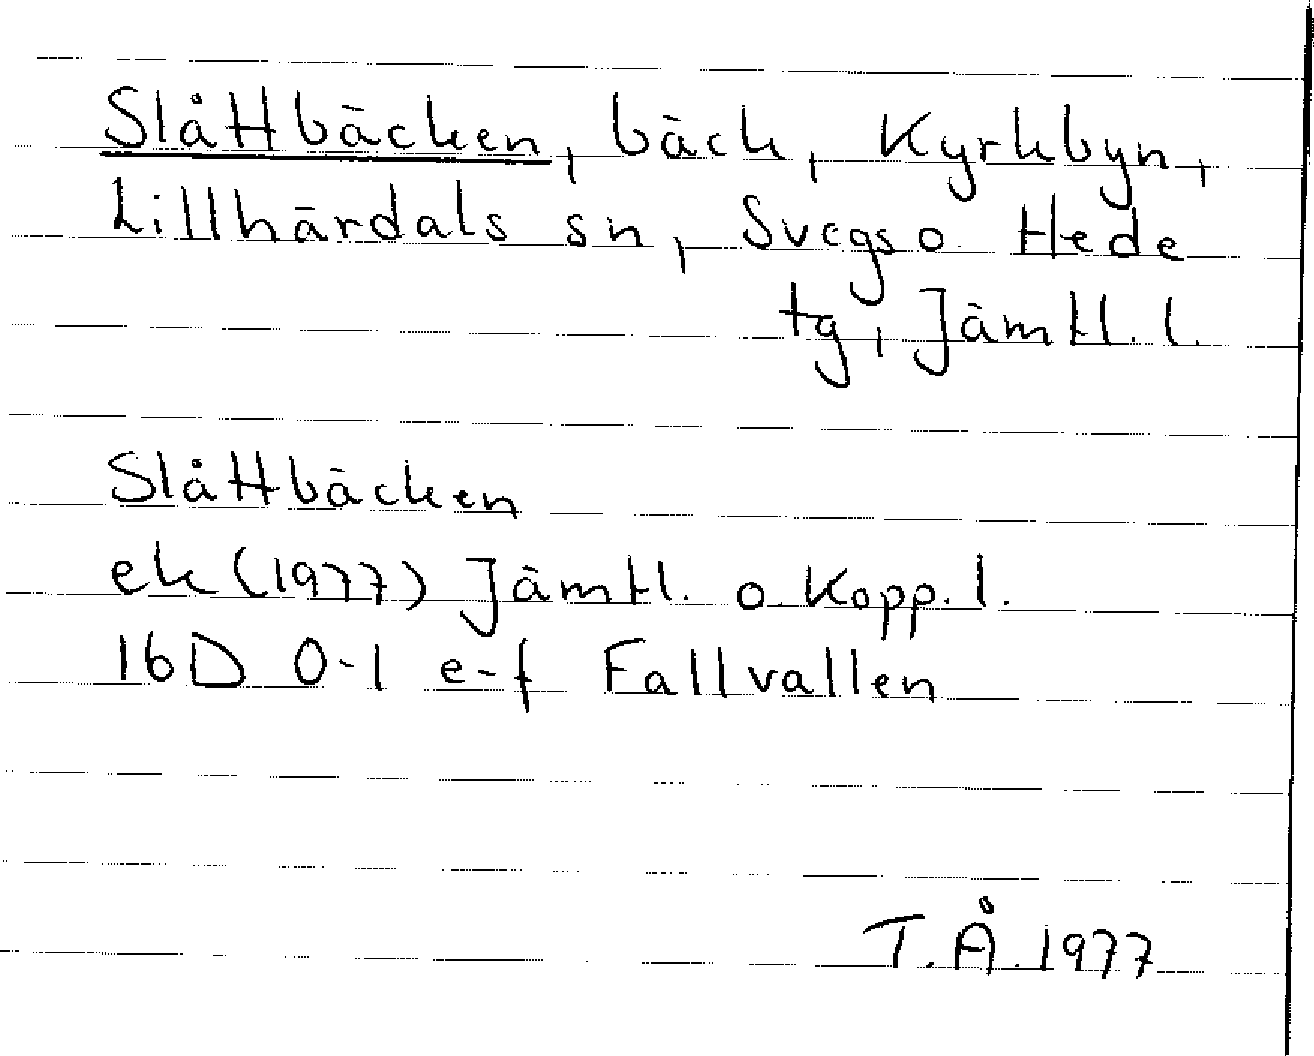 Slåttbäcken, bäck, Kyrkbyn,
Lillhärdals sn, Svegs o. Hede
tg, Jämtl. l.
Slåttbäcken
ek (1977) Jämtl. o. Kopp. l.
16D 0-1 e-f Fallvallen
T.Å. 1977